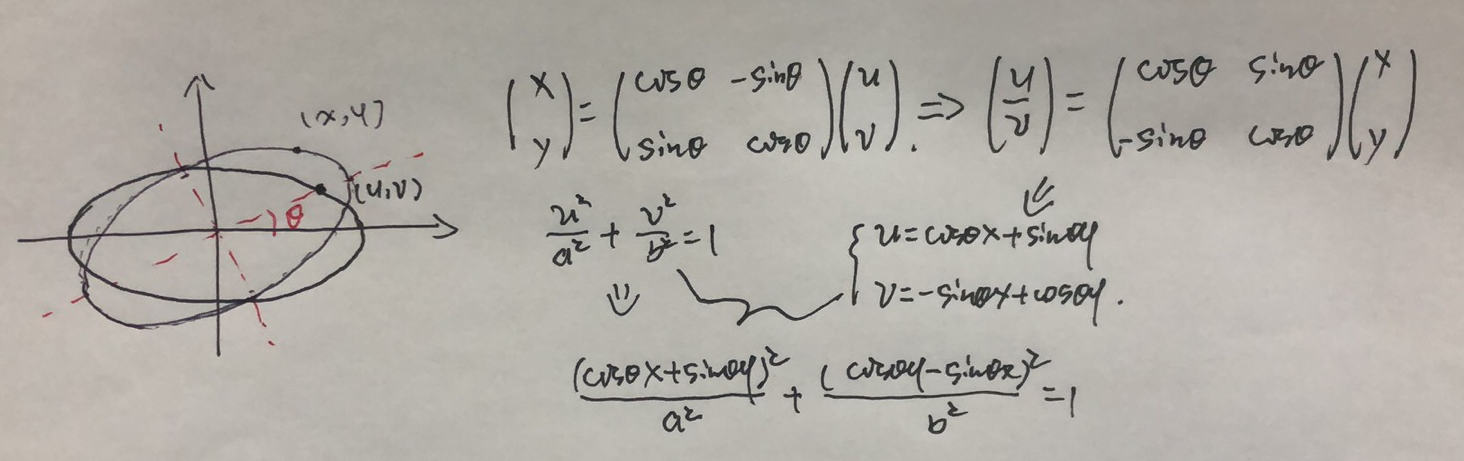 (x,y)
(u,v)
θ
(x y) = (cosθ -sinθ sinθ cosθ)(u v). => (u v) = (cosθ sinθ -sinθ cosθ)(x y)
u²/a² + v²/b² = 1
{ u=cosθx+sinθy
v=-sinθx+cosθy.
(cosθx+sinθy)²/a² + (cosθy-sinθx)²/b² = 1